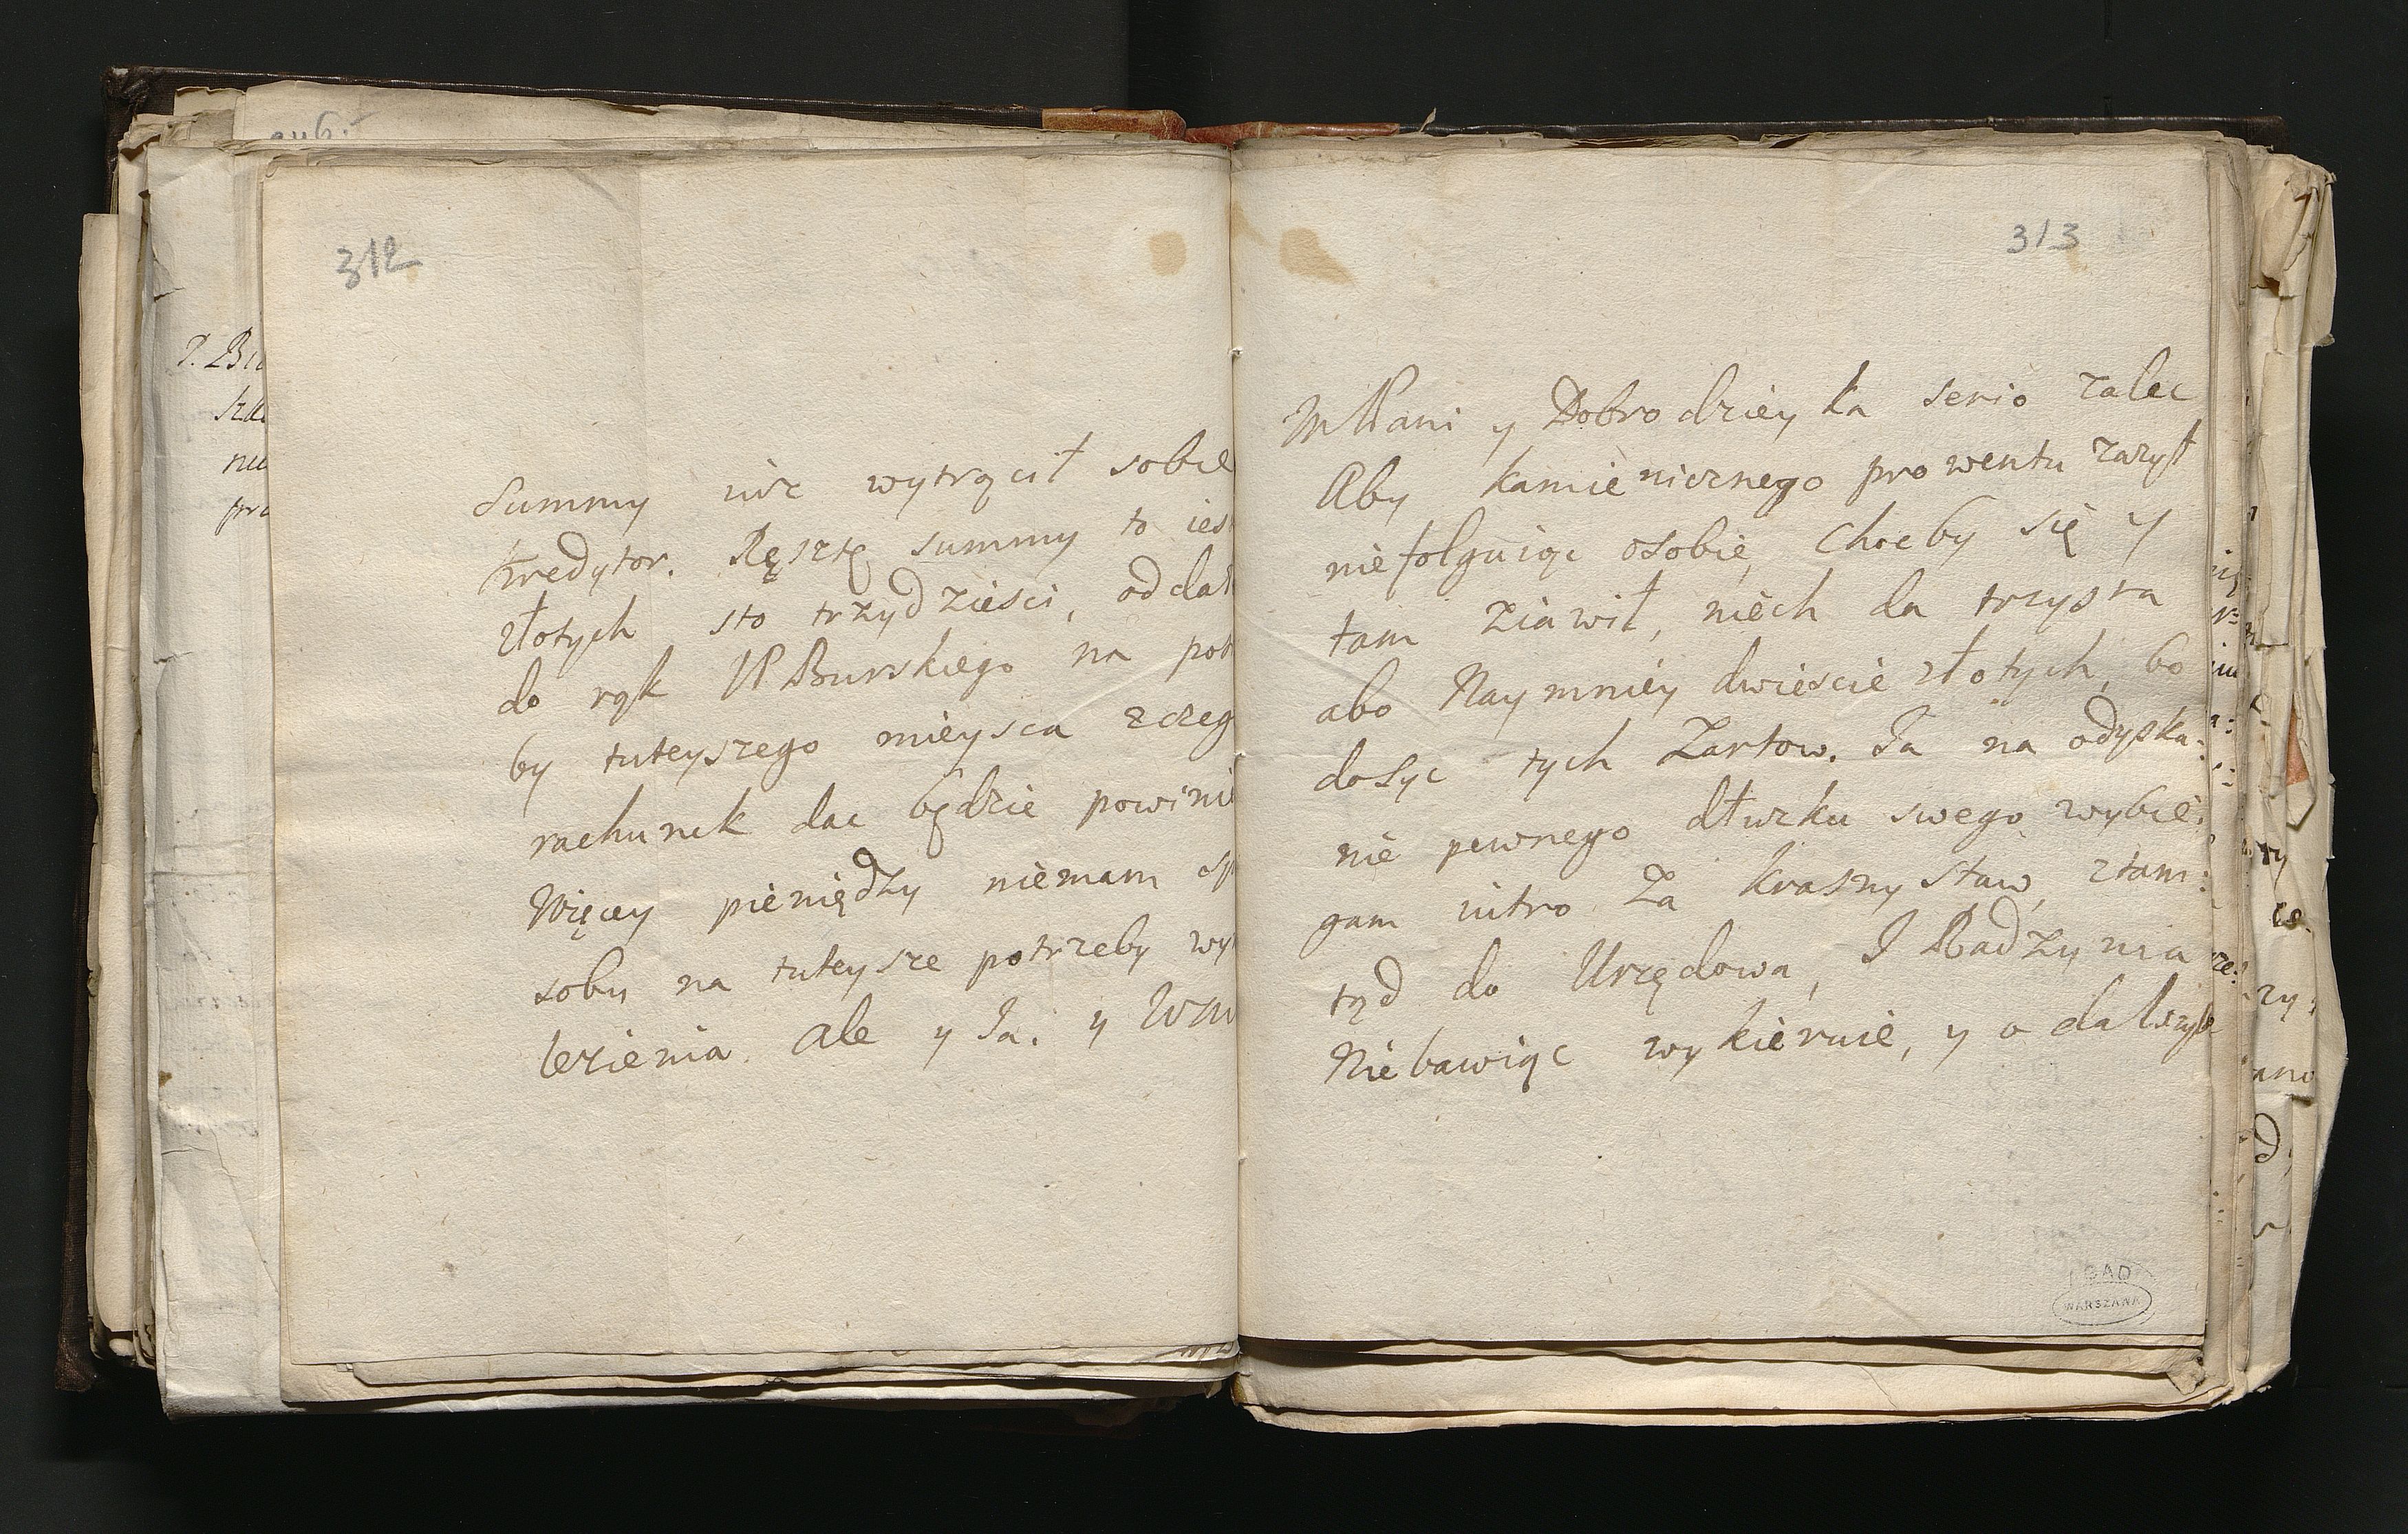 312
Summy iuz wytrącił sobie
kredytor. Ręsztę summy to iest
złotych sto trzydziesci, oddał
do rąk JP Burskiego na potr
by tuteyszego mieysca zczeg
rachunek dac będzie powinie
Więcey pieniędzy niemam sp
sobu na tuteysze potrzeby wy
lezienia. Ale y Ja. y WM
313
MPani y Dobrodzieyka serio zalec
Aby kamienicznego prowentu zazył
niefolguiąc osobie, Choc by się y
tam ziawił, niech da trzysta
abo Naymniey dwiescie złotych, bo
dosyc tych Zartow. Ja na odyska:
nie pewnego dłuzku swego wybie:
gam iutro Za Krasnystaw, ztam:
tąd do Urzędowa, I Radzynia
Niebawiąc wykieruie, y o dalszyb
AGAD
WARSZAWA